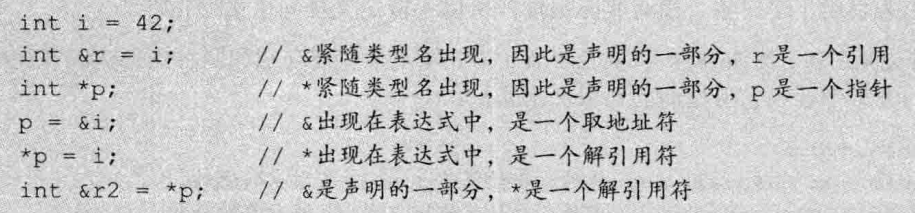 int i = 42;
int &r = i; // &紧随类型名出现，因此是声明的一部分，r是一个引用
int *p; // *紧随类型名出现，因此是声明的一部分，p是一个指针
p = &i; // &出现在表达式中，是一个取地址符
*p = i; // *出现在表达式中，是一个解引用符
int &r2 = *p; // &是声明的一部分，*是一个解引用符